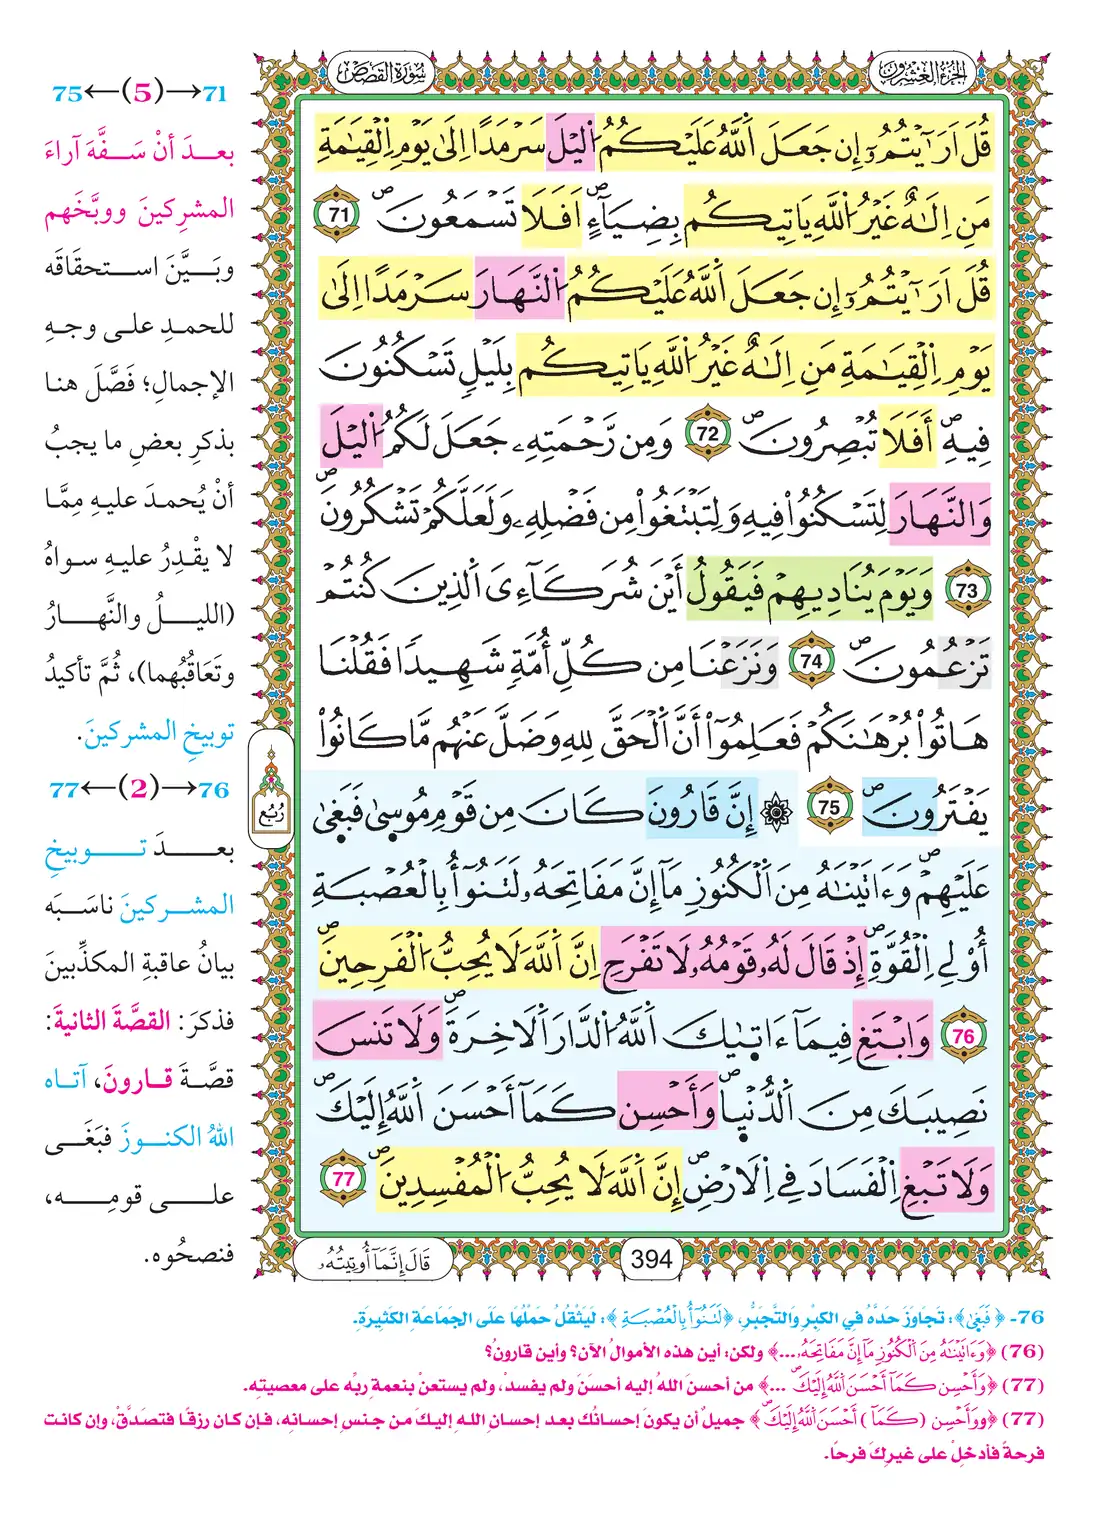 الجزء العشرون
سورة القصص
قُلَ اَرَٰٓيْتُمُۥٓ إِن جَعَلَ اَ۬للَّهُ عَلَيْكُمُ اُ۬ليْلَ سَرْمَداً اِلَىٰ يَوْمِ اِ۬لْقِيَٰمَةِ
مَنِ اِلَٰهٌ غَيْرُ اُ۬للَّهِ يَاتِيكُم بِضِيَآءٍۖ اَفَلَا تَسْمَعُونَۖ 71
قُلَ اَرَٰٓيْتُمُۥٓ إِن جَعَلَ اَ۬للَّهُ عَلَيْكُمُ اُ۬لنَّهَارَ سَرْمَداً اِلَىٰ
يَوْمِ اِ۬لْقِيَٰمَةِ مَنِ اِلَٰهٌ غَيْرُ اُ۬للَّهِ يَاتِيكُم بِلَيْلٍ تَسْكُنُونَ
فِيهِۖ أَفَلَا تُبْصِرُونَۖ 72 وَمِن رَّحْمَتِهِۦ جَعَلَ لَكُمُ اُ۬ليْلَ
وَالنَّهَارَ لِتَسْكُنُواْ فِيهِ وَلِتَبْتَغُواْ مِن فَضْلِهِۦ وَلَعَلَّكُمْ تَشْكُرُونَۖ
73 وَيَوْمَ يُنَادِيهِمْ فَيَقُولُ أَيْنَ شُرَكَآءِيَ اَ۬لَّذِينَ كُنتُمْ
تَزْعُمُونَۖ 74 وَنَزَعْنَا مِن كُلِّ أُمَّةٍ شَهِيداً فَقُلْنَا
هَاتُواْ بُرْهَٰنَكُمْ فَعَلِمُوٓاْ أَنَّ اَ۬لْحَقَّ لِلهِ وَضَلَّ عَنْهُم مَّا كَانُواْ
يَفْتَرُونَۖ 75 ۞ إِنَّ قَارُونَ كَانَ مِن قَوْمِ مُوسَىٰ فَبَغَىٰ
عَلَيْهِمْۖ وَءَاتَيْنَٰهُ مِنَ اَ۬لْكُنُوزِ مَآ إِنَّ مَفَاتِحَهُۥ لَتَنُوٓأُ بِالْعُصْبَةِ
أُوْلِے اِ۬لْقُوَّةِۖ إِذْ قَالَ لَهُۥ قَوْمُهُۥ لَا تَفْرَحِ اِنَّ اَ۬للَّهَ لَا يُحِبُّ اُ۬لْفَرِحِينَۖ
76 وَابْتَغِ فِيمَآ ءَاتَىٰكَ اَ۬للَّهُ اُ۬لدَّارَ اَ۬لَاخِرَةَۖ وَلَا تَنسَ
نَصِيبَكَ مِنَ اَ۬لدُّنْيَاۖ وَأَحْسِن كَمَآ أَحْسَنَ اَ۬للَّهُ إِلَيْكَۖ
وَلَا تَبْغِ اِ۬لْفَسَادَ فِے اِ۬لَارْضِۖ إِنَّ اَ۬للَّهَ لَا يُحِبُّ اُ۬لْمُفْسِدِينَۖ 77
رُبُع
قَالَ إِنَّمَآ أُوتِيتُهُۥ
394
71→(5)←75
بعدَ أنْ سَفَّهَ آراءَ
المشرِكينَ ووبَّخَهم
وبَيَّنَ استحقَاقَه
للحمدِ على وجهِ
الإجمالِ؛ فَصَّلَ هنا
بذكرِ بعضِ ما يجبُ
أنْ يُحمدَ عليهِ مِمَّا
لا يقْدِرُ عليهِ سواهُ
(الليلُ والنَّهارُ
وتَعَاقُبُهما)، ثُمَّ تأكيدُ
توبيخِ المشركينَ.
76→(2)←77
بعدَ توبيخِ
المشركينَ ناسَبَه
بيانُ عاقبةِ المكذِّبينَ
فذكرَ: القصَّةَ الثانيةَ:
قصَّةَ قارونَ، آتاه
اللهُ الكنوزَ فبَغَى
على قومِه،
فنصحُوه.
76- ﴿فَبَغَىٰ﴾: تَجَاوَزَ حَدَّهُ فِي الكِبْرِ وَالتَّجَبُّرِ، ﴿لَتَنُوٓأُ بِالْعُصْبَةِ﴾: لَيَثْقُلُ حَمْلُهَا عَلَى الجَمَاعَةِ الكَثِيرَةِ.
(76) ﴿وَءَاتَيْنَٰهُ مِنَ اَ۬لْكُنُوزِ مَآ إِنَّ مَفَاتِحَهُۥ...﴾ ولكن: أين هذه الأموالُ الآن؟ وأين قارونُ؟
(77) ﴿وَأَحْسِن كَمَآ أَحْسَنَ اَ۬للَّهُ إِلَيْكَۖ ...﴾ من أحسنَ اللهُ إليه أحسنَ ولم يفسدْ، ولم يستعنْ بنعمةِ ربِّه على معصيتِه.
(77) ﴿ووَأَحْسِن (كَمَآ) أَحْسَنَ اَ۬للَّهُ إِلَيْكَۖ﴾ جميلٌ أن يكونَ إحسانُك بعد إحسانِ اللهِ إليكَ من جنسِ إحسانِه، فإن كان رزقًا فتصدَّقْ، وإن كانت
فرحةً فأدخلْ على غيرِكَ فرحًا.